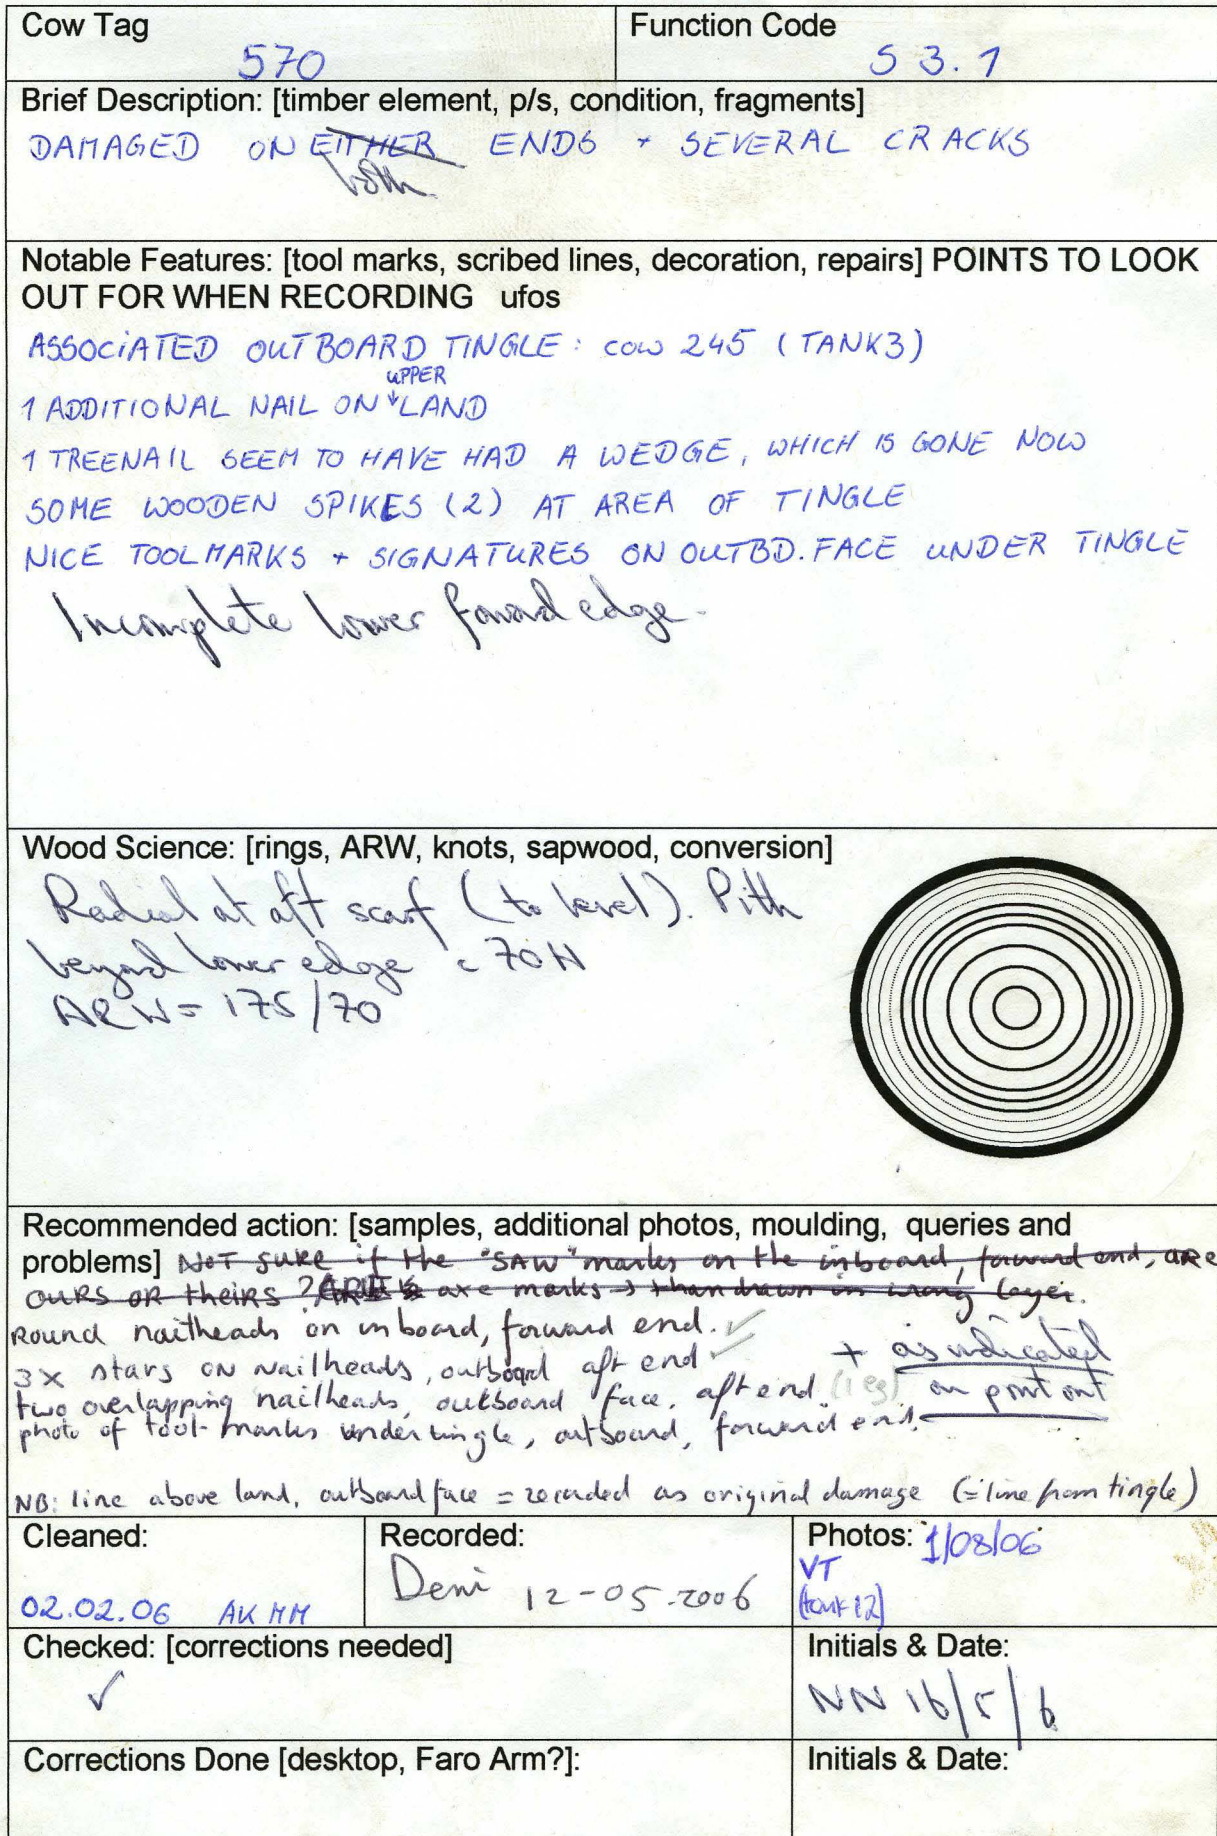 Cow Tag
570
Function Code
S 3.1
Brief Description: [timber element, p/s, condition, fragments]
DAMAGED ON EITHER ENDS + SEVERAL CRACKS
both
Notable Features: [tool marks, scribed lines, decoration, repairs] POINTS TO LOOK
OUT FOR WHEN RECORDING ufos
ASSOCiATED OUTBOARD TINGLE: COW 245 (TANK3)
UPPER
1 ADDITIONAL NAIL ON LAND
1 TREENAIL SEEM TO HAVE HAD A WEDGE, WHICH IS GONE NOW
SOME WOODEN SPIKES (2) AT AREA OF TINGLE
NICE TOOLMARKS + SIGNATURES ON OUTBD. FACE UNDER TINGLE
Incomplete lower forward edge.
Wood Science: [rings, ARW, knots, sapwood, conversion]
Radial at aft scarf (to bevel). Pith
beyond lower edge c 70
ARW = 175/70
Recommended action: [samples, additional photos, moulding, queries and
problems] NOT SURE if the "SAW" marks on the inboard, forward end, ARE
OURS OR theirs? axe marks → than drawn in wrong layer.
Round nailheads on inboard, forward end. ✓
3x stars on nailheads, outboard aft end ✓
+ as indicated
two overlapping nailheads, outboard face, aft end (1 eg)
on print out
photo of tool-marks under tingle, outboard, forward end.
NB: line above land, outboard face = recorded as original damage (= line from tingle)
Cleaned:
02.02.06 AK MM
Recorded:
Deni 12-05-2006
Photos: 1/08/06
VT
(tank 12)
Checked: [corrections needed]
✓
Initials & Date:
NN 16/5/6
Corrections Done [desktop, Faro Arm?]:
Initials & Date: